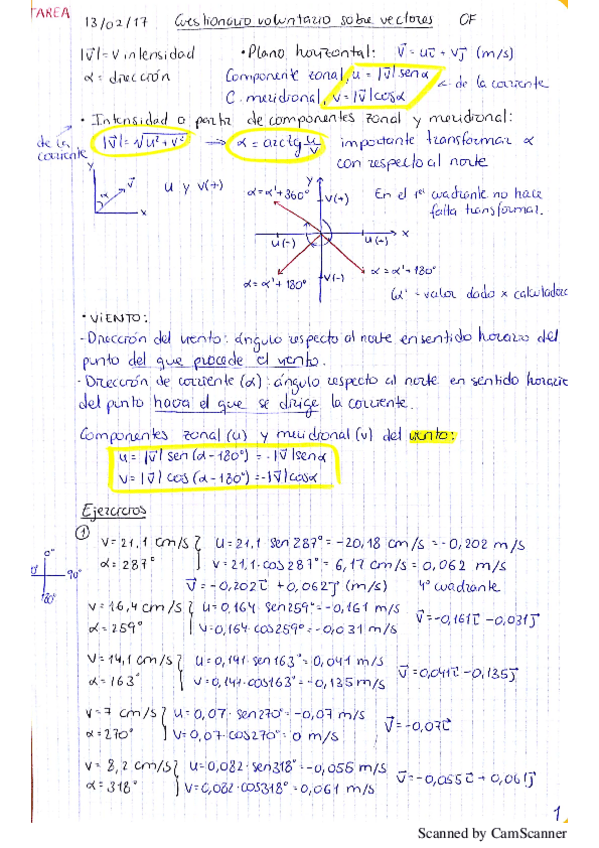 TAREA
13/02/17 Cuestionario voluntario sobre vectores OF
|v⃗| = v intensidad
α = dirección
• Plano horizontal: v⃗ = ui⃗ + vj⃗ (m/s)
Componente zonal, u = |v⃗| senα
C. meridional, v = |v⃗| cosα
α de la corriente
• Intensidad a partir de componentes zonal y meridional:
de la corriente
|v⃗| = √u²+v² → α = arctg u/v importante transformar α
con respecto al norte
y
α v⃗
x
u y v(+)
α = α'+360°
y
v(+)
En el 1er cuadrante no hace
falta transformar.
u(-) u(-) x
α = α'+180°
v(-)
α = α'+180°
α' = valor dado x calculadora
• VIENTO:
- Dirección del viento: ángulo respecto al norte en sentido horario del
punto del que procede el viento.
- Dirección de corriente (α): ángulo respecto al norte en sentido horario
del punto hacia el que se dirige la corriente.
Componentes zonal (u) y meridional (v) del viento:
u = |v⃗| sen (α-180°) = -|v⃗| senα
v = |v⃗| cos (α-180°) = -|v⃗| cosα
Ejercicios
①
v = 21,1 cm/s } u = 21,1 · sen 287° = -20,18 cm/s = -0,202 m/s
α = 287° } v = 21,1 · cos 287° = 6,17 cm/s = 0,062 m/s
v⃗ = -0,202i⃗ + 0,062j⃗ (m/s) 4º cuadrante
0°
90°
180°
v = 16,4 cm/s } u = 0,164 · sen259° = -0,161 m/s
α = 259° } v = 0,164 · cos259° = -0,031 m/s
v⃗ = -0,161i⃗ - 0,031j⃗
v = 14,1 cm/s } u = 0,141 · sen163° = 0,041 m/s
α = 163° } v = 0,141 · cos163° = -0,135 m/s
v⃗ = 0,041i⃗ - 0,135j⃗
v = 7 cm/s } u = 0,07 · sen270° = -0,07 m/s
α = 270° } v = 0,07 · cos270° = 0 m/s
v⃗ = -0,07i⃗
v = 8,2 cm/s } u = 0,082 · sen318° = -0,055 m/s
α = 318° } v = 0,082 · cos318° = 0,061 m/s
v⃗ = -0,055i⃗ + 0,061j⃗
1
Scanned by CamScanner